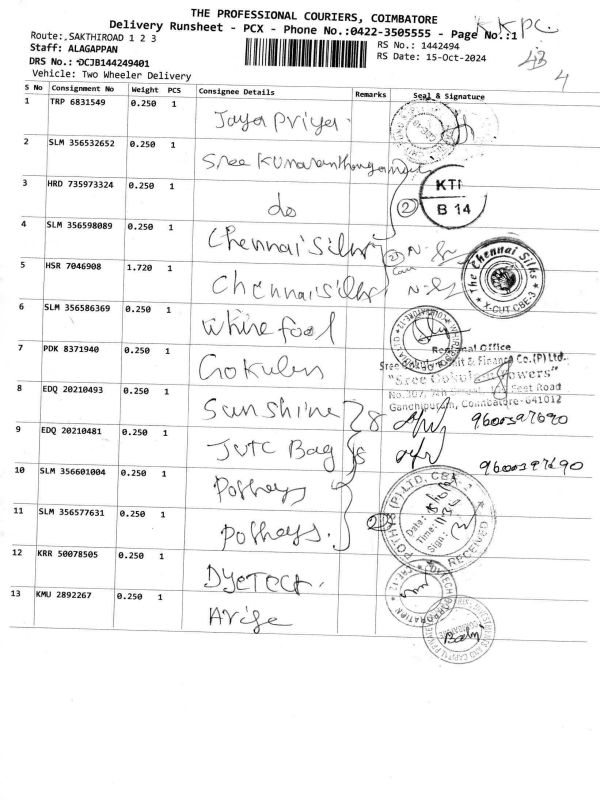 THE PROFESSIONAL COURIERS, COIMBATORE
Delivery Runsheet - PCX - Phone No.:0422-3505555 - Page No.:1
KKPC
Route:,SAKTHIROAD 1 2 3
RS No.: 1442494
Staff: ALAGAPPAN
RS Date: 15-Oct-2024
DRS No.: DCJB144249401
Vehicle: Two Wheeler Delivery
4
S No Consignment No Weight PCS Consignee Details Remarks Seal & Signature
1 TRP 6831549 0.250 1 Jaya Priya
2 SLM 356532652 0.250 1 Sree
3 HRD 735973324 0.250 1 do
2 KTI
B 14
4 SLM 356598089 0.250 1 Chennai Silks
5 HSR 7046908 1.720 1 Chennai Silks
The Chennai Silks
X-CUT, CBE-3
6 SLM 356586369 0.250 1 White fool
7 PDK 8371940 0.250 1 Gokulam
Regional Office
Sree Gokulam Chit & Finance Co.(P) Ltd.,
"Sree Gokulam Towers"
Ganchipuram, Coimbatore-641012
8 EDQ 20210493 0.250 1 Sunshine 9600397690
9 EDQ 20210481 0.250 1 JVTC Bags 9600397690
10 SLM 356601004 0.250 1 Potheys
11 SLM 356577631 0.250 1 Potheys.
POTHYS (P) LTD, CBE-1
Date:
Time: 1130
Sign:
RECEIVED
12 KRR 50078505 0.250 1 DyeTech.
13 KMU 2892267 0.250 1 Arise